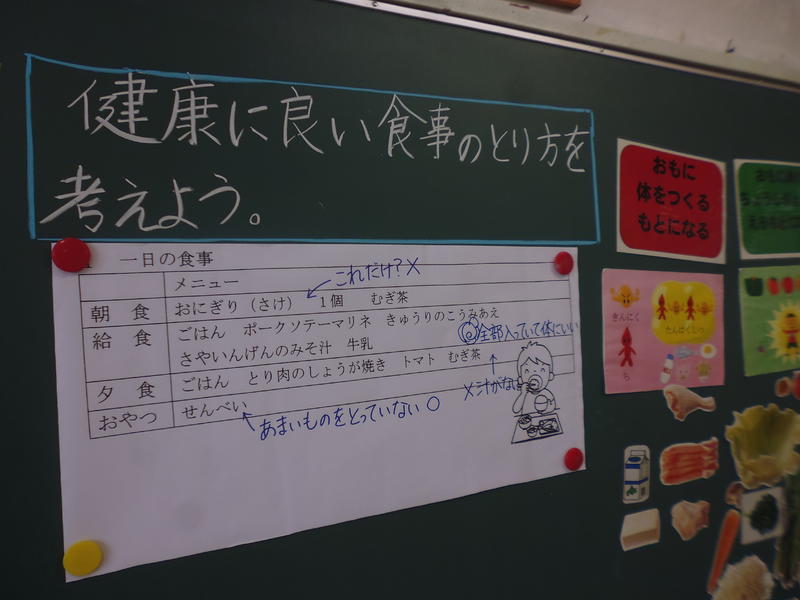 健康に良い食事のとり方を
考えよう。
一日の食事
メニュー
これだけ?×
朝食 おにぎり(さけ) 1個 むぎ茶
給食 ごはん ポークソテーマリネ きゅうりのこうみあえ
さやいんげんのみそ汁 牛乳
◎全部入っていて体にいい
夕食 ごはん とり肉のしょうが焼き トマト むぎ茶
×汁がな
おやつ せんべい
あまいものをとっていない○
おもに
体をつくる
もとになる
きんにく
たんぱくしつ
ち